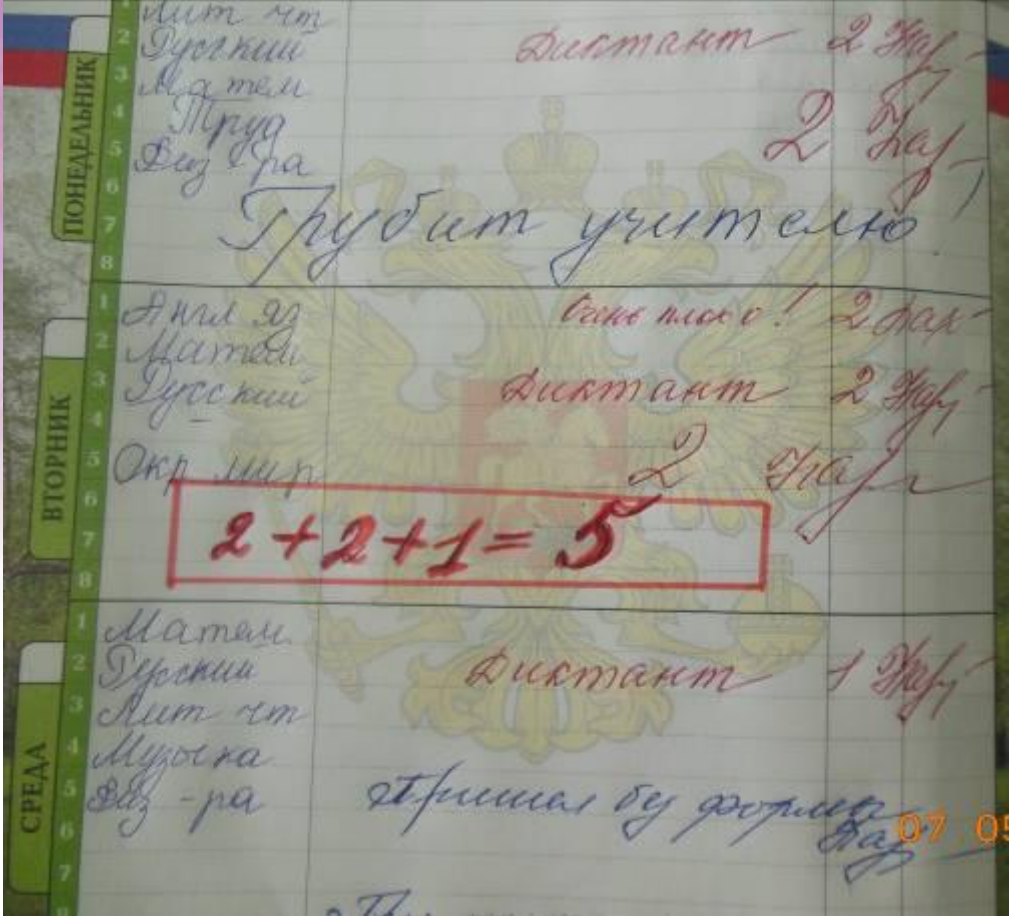 ПОНЕДЕЛЬНИК
1 Лит чт
2 Русский Диктант 2
3 Матем
4 Труд 2
5 Физ-ра
6
7 Грубит учителю
8
ВТОРНИК
1 Англ яз Очень плохо! 2
2 Матем
3 Русский Диктант 2
4
5 Окр мир 2
6
7 2+2+1=5
8
СРЕДА
1 Матем
2 Русский Диктант 1
3 Лит чт
4 Музыка
5 Физ-ра Пришел бу формы
6
7
8
07 05